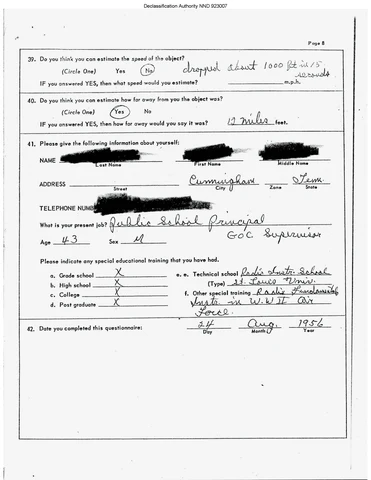 Declassification Authority NND 923007
Page 8
39. Do you think you can estimate the speed of the object?
(Circle One) Yes No
dropped about 1000 ft in 15 seconds
IF you answered YES, then what speed would you estimate? m.p.h.
40. Do you think you can estimate how far away from you the object was?
(Circle One) Yes No
IF you answered YES, then how far away would you say it was? 12 miles feet.
41. Please give the following information about yourself:
NAME
Last Name First Name Middle Name
ADDRESS Cunningham Tenn.
Street City Zone State
TELEPHONE NUMB
What is your present job? Public School Principal
GOC Supervisor
Age 43 Sex M
Please indicate any special educational training that you have had.
a. Grade school X
b. High school X
c. College X
d. Post graduate X
e. e. Technical school Radio Instr. School
(Type) St. Louis Univ.
f. Other special training Radio Fundamentals
Instr. in W.W II Air
Force.
42. Date you completed this questionnaire: 24 Aug. 1956
Day Month Year